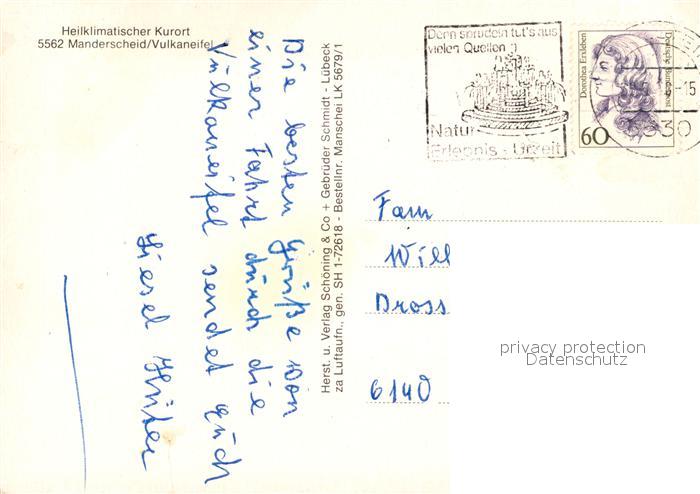 Heilklimatischer Kurort
5562 Manderscheid/Vulkaneifel
Die besten Grüße von
einer Fahrt durch die
Vulkaneifel sendet euch
Liesel
Herst. u. Verlag Schöning & Co + Gebrüder Schmidt - Lübeck
za Luftaufn., gen. SH 1-72618 - Bestellnr. Manschei LK 5679/1
Denn sprudeln tut's aus
vielen Quellen :)
Natur
Erlebnis - Urzeit
Dorothea Erxleben
Deutsche Bundespost
60
-15
Fam
Will
Dross
6140
privacy protection
Datenschutz